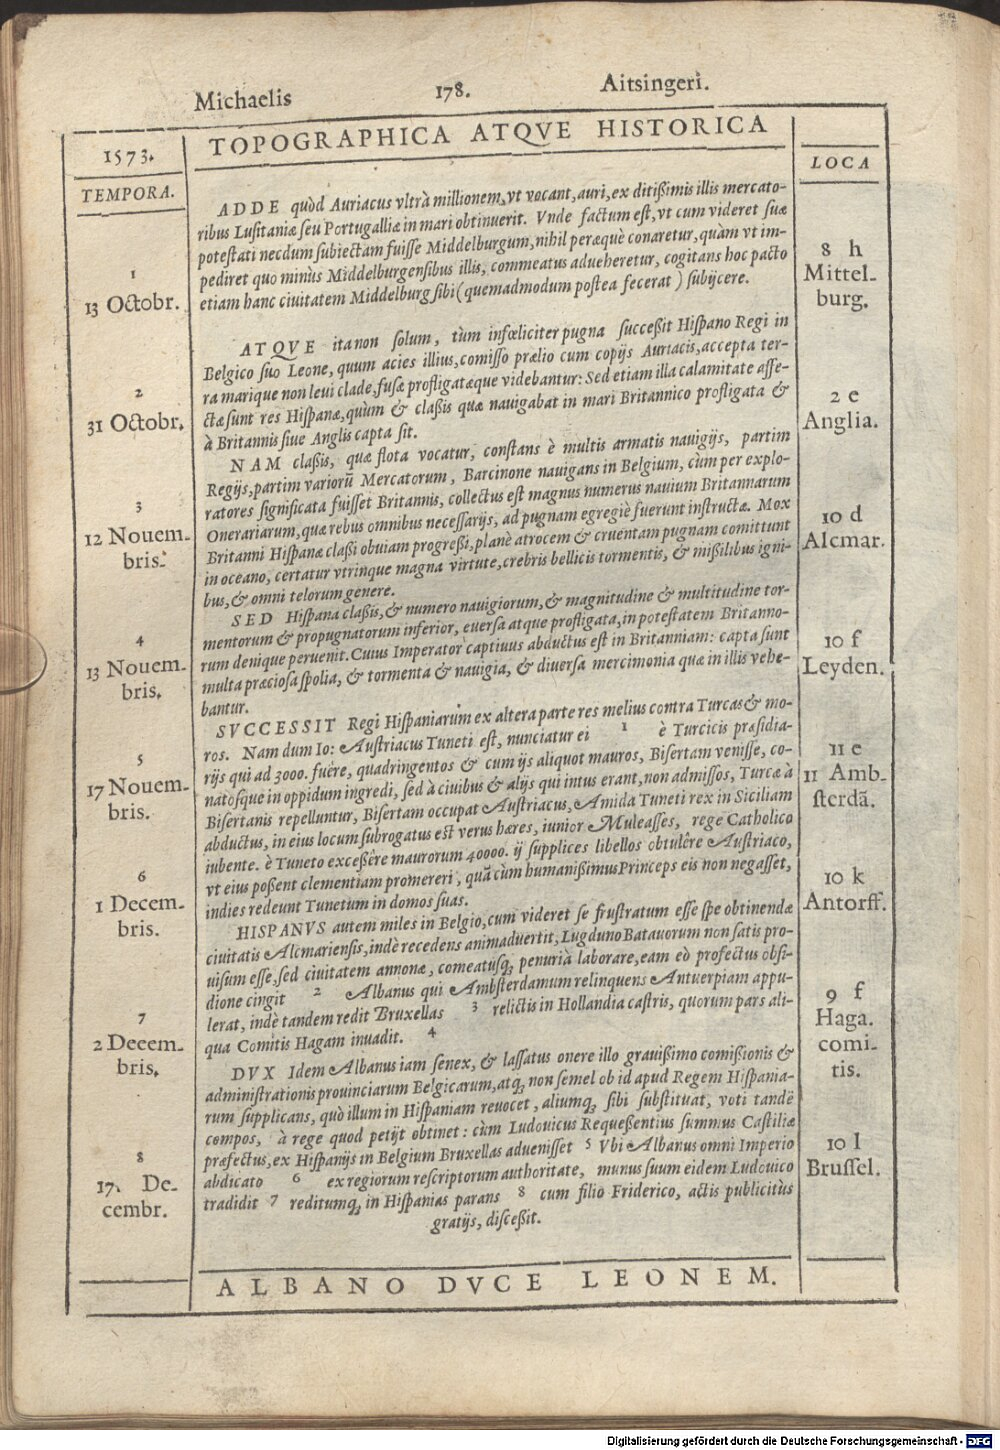 Michaelis 178. Aitsingeri.
TOPOGRAPHICA ATQVE HISTORICA
1573.
TEMPORA.
LOCA
1
13 Octobr.
2
31 Octobr.
3
12 Nouem-
bris.
4
13 Nouem-
bris.
5
17 Nouem-
bris.
6
1 Decem-
bris.
7
2 Decem-
bris.
8
17. De-
cembr.
ADDE quòd Auriacus vltrà millionem, vt vocant, auri, ex ditißimis illis mercato-
ribus Lusitaniæ seu Portugalliæ in mari obtinuerit. Vnde factum est, vt cum videret suæ
potestati necdum subiectam fuisse Middelburgum, nihil peræquè conaretur, quàm vt im-
pediret quo minùs Middelburgensibus illis, commeatus adueheretur, cogitans hoc pacto
etiam hanc ciuitatem Middelburg sibi (quemadmodum postea fecerat) subijcere.
ATQVE ita non solum, tùm infœliciter pugna succeßit Hispano Regi in
Belgico suo Leone, quum acies illius, comisso prælio cum copijs Auriacis, accepta ter-
ra marique non leui clade, fusæ profligatæque videbantur: Sed etiam illa calamitate affe-
ctæ sunt res Hispanæ, quùm & claßis quæ nauigabat in mari Britannico profligata &
à Britannis siue Anglis capta sit.
NAM claßis, quæ flota vocatur, constans è multis armatis nauigijs, partim
Regijs, partim variorũ Mercatorum, Barcinone nauigans in Belgium, cùm per explo-
ratores significata fuisset Britannis, collectus est magnus numerus nauium Britannarum
Onerariarum, quæ rebus omnibus necessarijs, ad pugnam egregiè fuerunt instructæ. Mox
Britanni Hispanæ claßi obuiam progreßi, planè atrocem & cruentam pugnam comittunt
in oceano, certatur vtrinque magna virtute, crebris bellicis tormentis, & mißilibus igni-
bus, & omni telorum genere.
SED Hispana claßis, & numero nauigiorum, & magnitudine & multitudine tor-
mentorum & propugnatorum inferior, euersa atque profligata, in potestatem Britanno-
rum denique peruenit. Cuius Imperator captiuus abductus est in Britanniam: capta sunt
multa præciosa spolia, & tormenta & nauigia, & diuersa mercimonia quæ in illis vehe-
bantur.
SVCCESSIT Regi Hispaniarum ex altera parte res melius contra Turcas & mo-
ros. Nam dum Io: Austriacus Tuneti est, nunciatur ei 1 è Turcicis præsidia-
rijs qui ad 3000. fuêre, quadringentos & cum ijs aliquot mauros, Bisertam venisse, co-
natosque in oppidum ingredi, sed à ciuibus & alijs qui intus erant, non admissos, Turcæ à
Bisertanis repelluntur, Bisertam occupat Austriacus, Amida Tuneti rex in Siciliam
abductus, in eius locum subrogatus est verus hæres, iunior Muleasses, rege Catholico
iubente. è Tuneto exceßêre maurorum 40000. ij supplices libellos obtulêre Austriaco,
vt eius poßent clementiam promereri, quã cùm humanißimus Princeps eis non negasset,
indies redeunt Tunetum in domos suas.
HISPANVS autem miles in Belgio, cum videret se frustratum esse spe obtinendæ
ciuitatis Alcmariensis, indè recedens animaduertit, Lugduno Batauorum non satis pro-
uisum esse, sed ciuitatem annonæ, comeatusq; penuria laborare, eam eò profectus obsi-
dione cingit 2 Albanus qui Ambsterdamum relinquens Antuerpiam appu-
lerat, indè tandem redit Bruxellas 3 relictis in Hollandia castris, quorum pars ali-
qua Comitis Hagam inuadit. 4
DVX Idem Albanus iam senex, & lassatus onere illo grauißimo comißionis &
administrationis prouinciarum Belgicarum, atq; non semel ob id apud Regem Hispania-
rum supplicans, quò illum in Hispaniam reuocet, aliumq; sibi substituat, voti tandẽ
compos, à rege quod petijt obtinet: cùm Ludouicus Requeßentius summus Castiliæ
præfectus, ex Hispanijs in Belgium Bruxellas adueniſſet 5 Vbi Albanus omni Imperio
abdicato 6 ex regiorum rescriptorum authoritate, munus suum eidem Ludouico
tradidit 7 reditumq; in Hispanias parans 8 cum filio Friderico, actis publicitùs
gratijs, disceßit.
8 h
Mittel-
burg.
2 e
Anglia.
10 d
Alcmar.
10 f
Leyden.
11 e
11 Amb-
sterdã.
10 k
Antorff.
9 f
Haga.
comi-
tis.
10 l
Brussel.
ALBANO DVCE LEONEM.
Digitalisierung gefördert durch die Deutsche Forschungsgemeinschaft - DFG